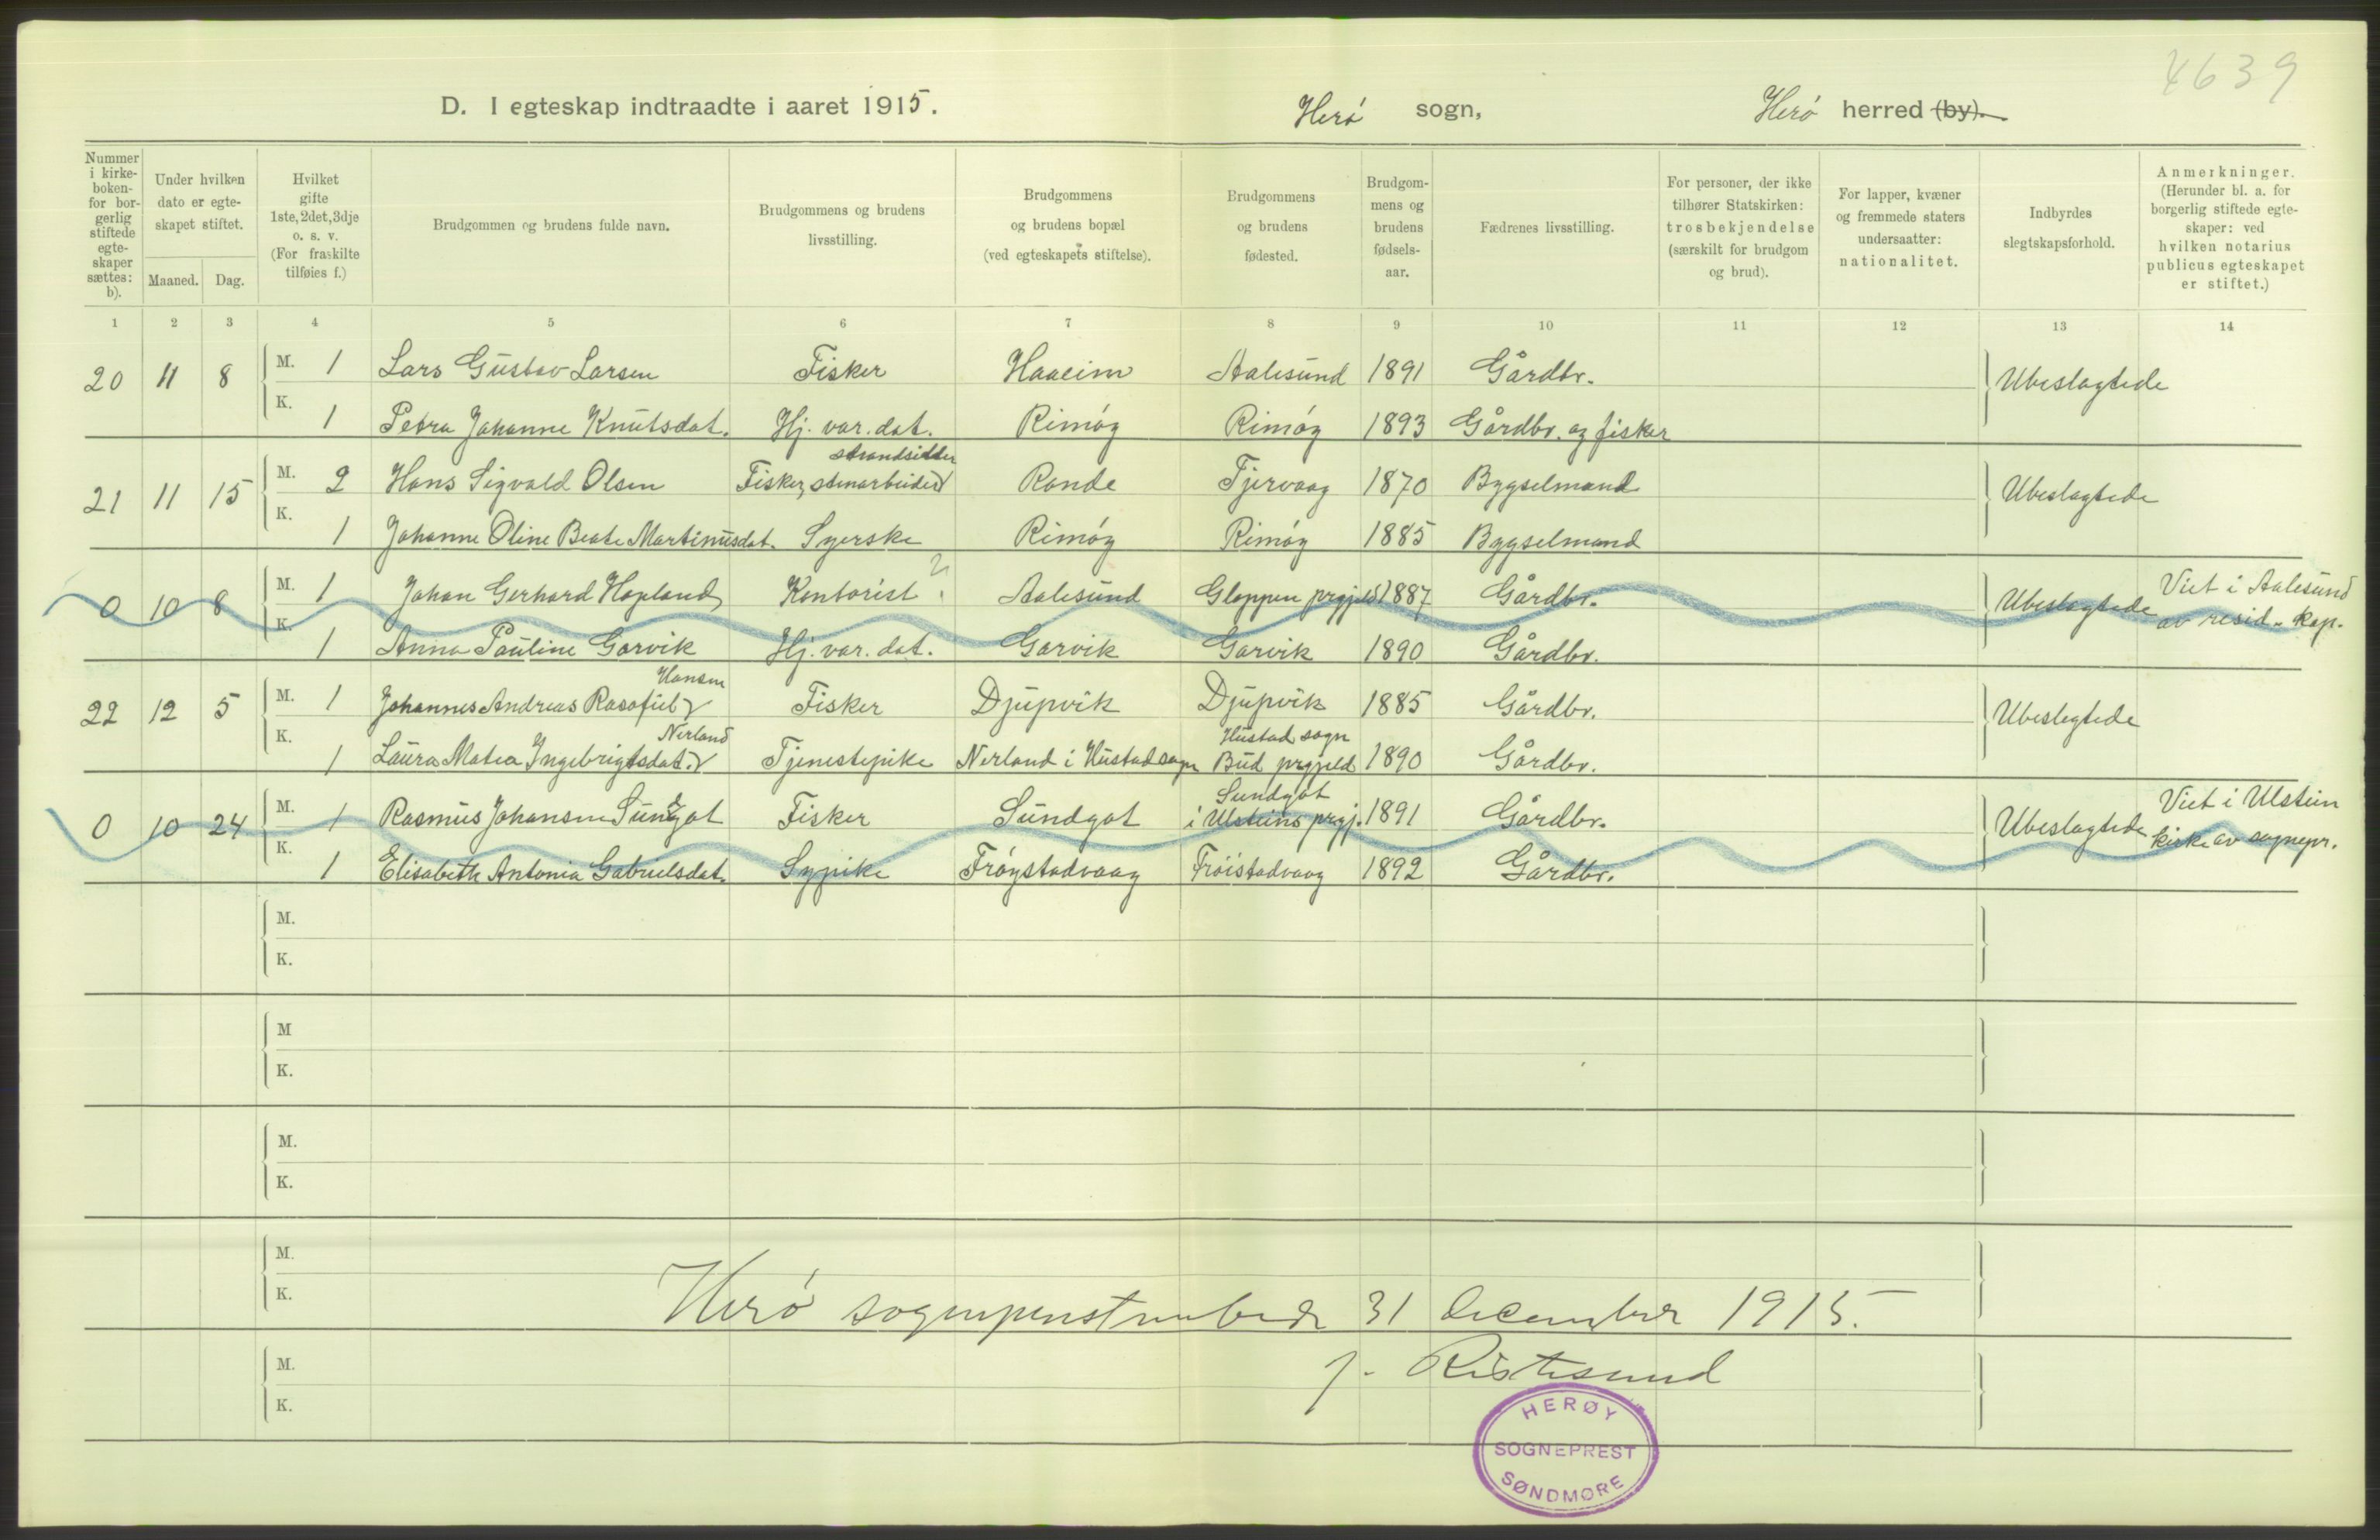 4639
D. I egteskap indtraadte i aaret 1915. Herø sogn, Herø herred (by).
Nummer i kirke-boken- for bor-gerlig stiftede egte-skaper sættes: b).
Under hvilken dato er egte-skapet stiftet.
Maaned. Dag.
Hvilket gifte 1ste, 2det, 3dje o. s. v. (For fraskilte tilføies f.)
Brudgommen og brudens fulde navn.
Brudgommens og brudens livsstilling.
Brudgommens og brudens bopæl (ved egteskapets stiftelse).
Brudgommens og brudens fødested.
Brudgom-mens og brudens fødsels-aar.
Fædrenes livsstilling.
For personer, der ikke tilhører Statskirken: trosbekjendelse (særskilt for brudgom og brud).
For lapper, kvæner og fremmede staters undersaatter: nationalitet.
Indbyrdes slegtskapsforhold.
Anmerkninger. (Herunder bl. a. for borgerlig stiftede egte-skaper: ved hvilken notarius publicus egteskapet er stiftet.)
1 2 3 4 5 6 7 8 9 10 11 12 13 14
20 11 8 M. 1 Lars Gustav Larsen Fisker Haaeim Aalesund 1891 Gårdbr. Ubeslagtede
K. 1 Petra Johanne Knutsdat. Hj. var. dat. Rimøy Rimøy 1893 Gårdbr. og fisker
strandsidder
21 11 15 M. 2 Hans Sigvald Olsen Fisker, stenarbeider Rande Tjervaag 1870 Bygselmand Ubeslagtede
K. 1 Johanne Oline Beate Martinusdat. Syerske Rimøy Rimøy 1885 Bygselmand
0 10 8 M. 1 Johan Gerhard Hopland Kontorist Aalesund Gloppen prgjeld 1887 Gårdbr. Ubeslagtede Viet i Aalesund av resid. kap.
K. 1 Anna Pauline Garvik Hj. var. dat. Garvik Garvik 1890 Gårdbr.
Hansen
22 12 5 M. 1 Johannes Andreas Rasafut Fisker Djupvik Djupvik 1885 Gårdbr. Ubeslegtede
Nerland Hustad sogn
K. 1 Laura Matea Ingebrigtsdat. Tjenestepike Nerland i Hustad sogn Bud prgjeld 1890 Gårdbr.
Sundgot
0 10 24 M. 1 Rasmus Johansen Sundgot Fisker Sundgot i Ulsteins prgj. 1891 Gårdbr. Ubeslagtede Viet i Ulstein kirke av sognepr.
K. 1 Elisabeth Antonia Gabrielsdat. Sypike Frøystadvaag Frøistadvaag 1892 Gårdbr.
M.
K.
M
K.
M.
K.
M.
K.
Herø sogneprestembede 31 december 1915.
M.
K.
J. Ristesund
HERØY
SOGNEPREST
SØNDMØRE